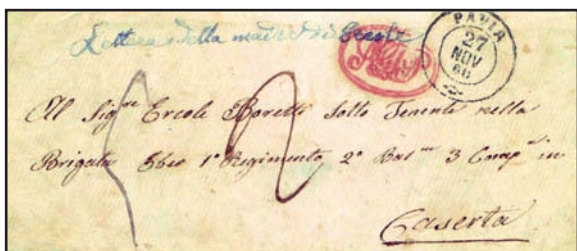 Lettera della madre di Ercole
PAVIA
27
NOV
60
Al Sig.re Ercole Boretti Sotto Tenente nella
Brigata 1° Regimento 2° Bat.ne 3 Comp.a in
Caserta